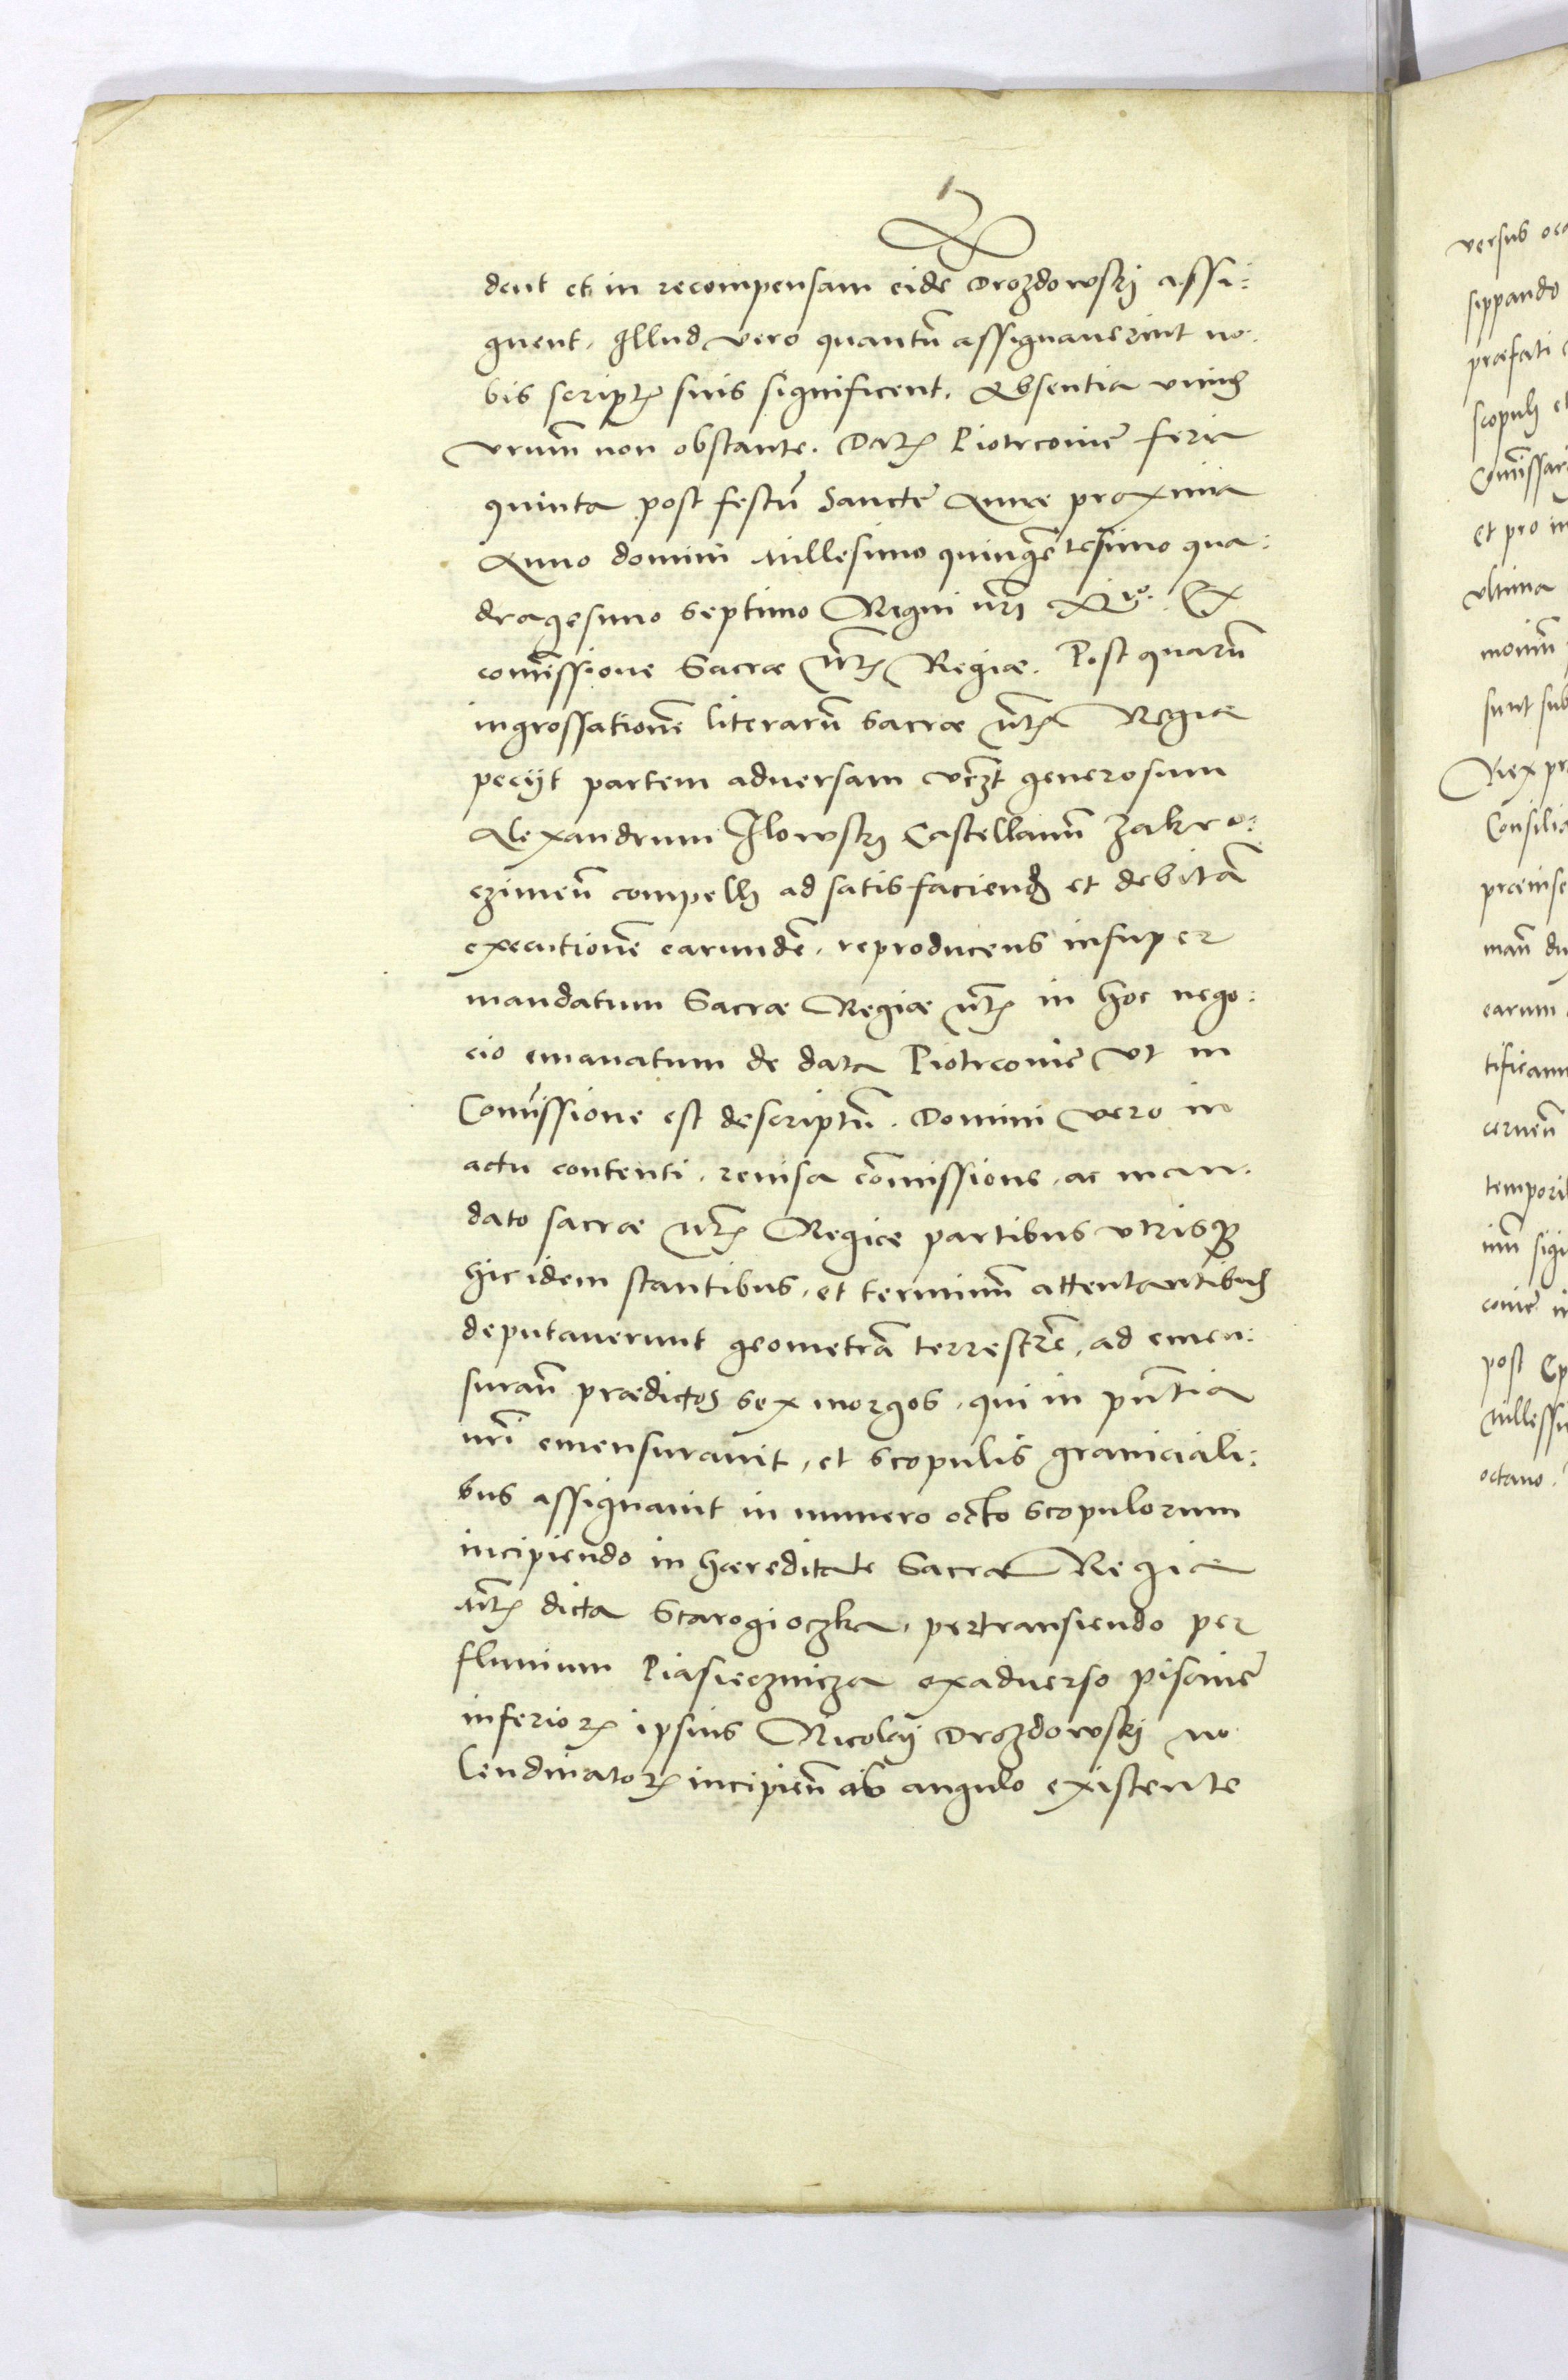 dent et in recompensam eidē Drozdowskj assi:
gnent. Illud vero quantū assignauerint no:
bis scriptꝭ suis significent. Absentia vniꝰ
vrum̄ non obstante. Datꝭ Piotrcouie feria
quinta post festū Sanctę Annæ proxima
Anno domini millesimo quingētesimo qua:
dragesimo septimo Regni nr̄i xlio. Ex
com̄issione Sacræ Mtꝭ Regiæ. Post quarū
ingrossationē literarū sacræ Mtꝭ Regiæ
pecijt partem aduersam vczt generosum
Alexandrum Ilowskj Castellanū Zakro:
czimeñ compellj ad satisfaciend et debitā
executionē earundē. reproducens insuper
mandatum Sacræ Regiæ Mtꝭ in hoc nego:
cio emanatum de data Piotrcouię vt in
Com̄issione est descriptū. Domini vero in
actu contenti, reuisa com̄issione, ac man:
dato sacræ Mtꝭ Regiæ partibus vtrisqꝫ
hic idem stantibus, et terminū attentantibuꝰ
deputauerunt geometrā terrestrē, ad emen:
surañ prædictos sex morgos, qui in pn̄tia
nr̄i emensurauit, et scopulis graniciali:
bus assignauit in numero octo scopulorum
incipiendo in hæreditate Sacræ Regiæ
Mtꝭ dicta Starogioczka, pertransiendo per
fluuium Piasiecznicza exaduerso pisciñę
inferiorꝭ ipsius Nicolaj Drozdowskj mo
lendinatorꝭ incipieñ ab angulo existente
versus
sippando
præfati
scopulj et
Com̄issar
et pro in
vltima
sunt sub
Rex pr
Consilia
præinse
mañ du
earum
tificam
cerneñ
tempori
im̄ sigi
post Ep
millessi
octauo.